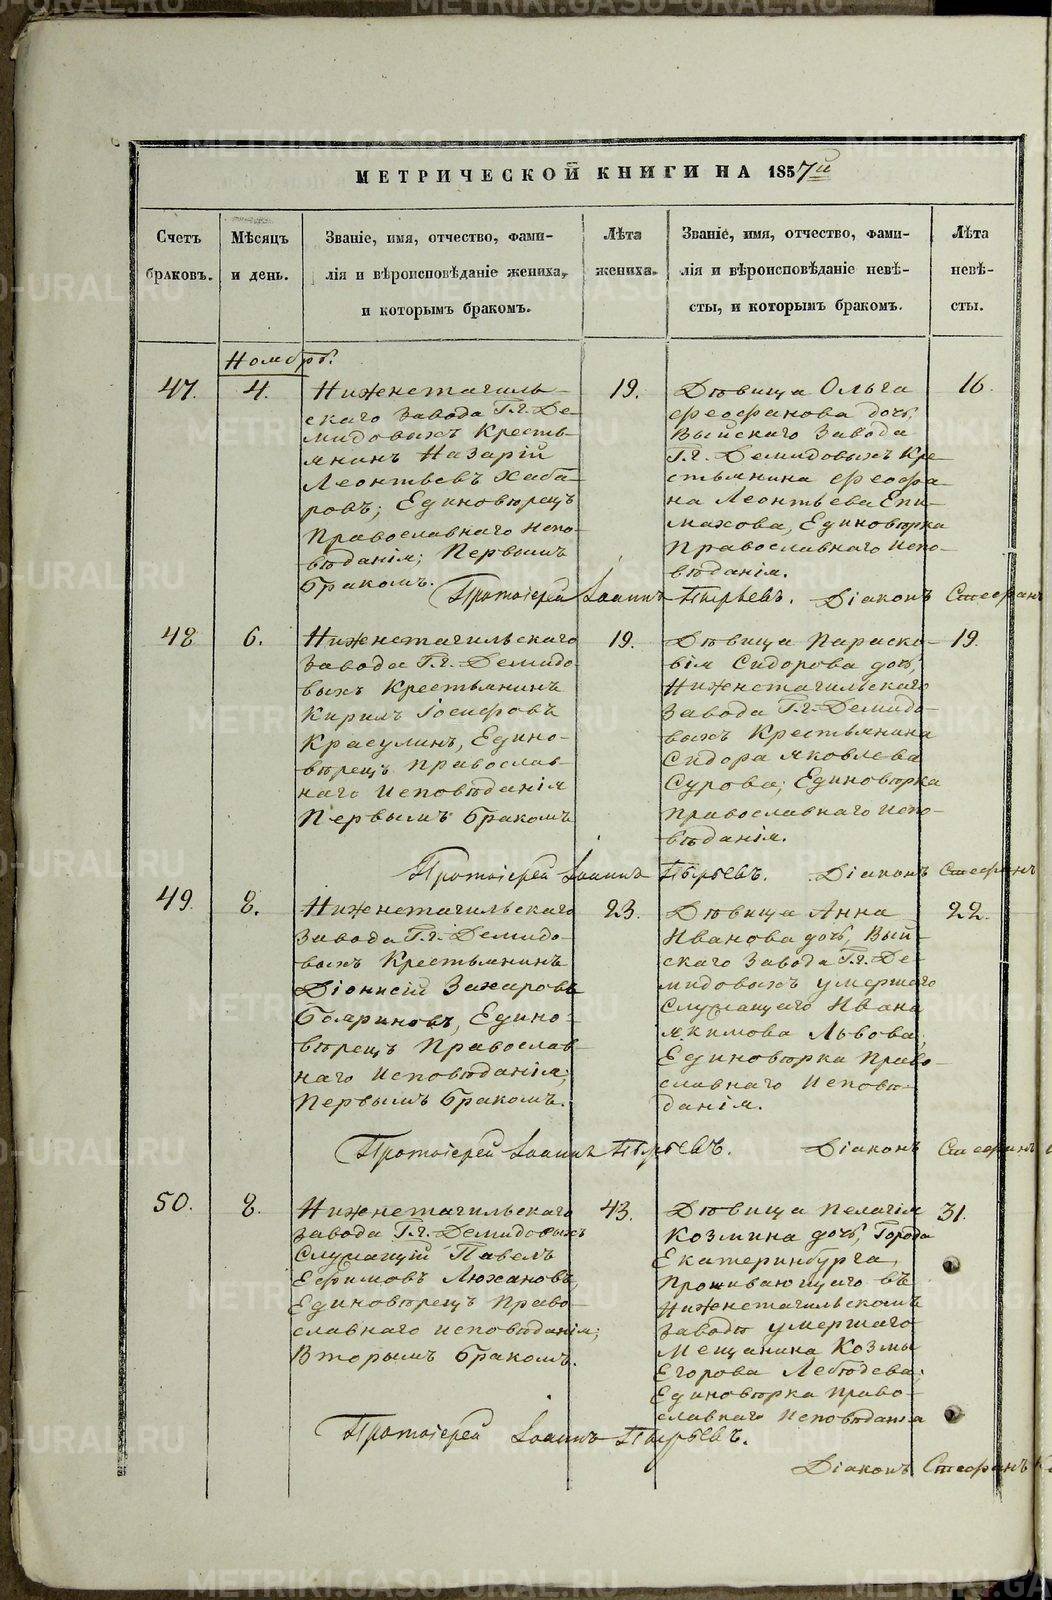 МЕТРИЧЕСКОЙ КНИГИ НА 1857й
Счетъ
браковъ.
Мѣсяцъ
и день.
Званіе, имя, отчество, фами-
лія и вѣроисповѣданіе жениха,
и которымъ бракомъ.
Лѣта
жениха.
Званіе, имя, отчество, фами-
лія и вѣроисповѣданіе невѣ-
сты, и которымъ бракомъ.
Лѣта
невѣ-
сты.
Ноябрь.
47.
4.
Нижнетагиль-
скаго завода Г.г. Де-
мидовыхъ Кресть-
янинъ Назарій
Леонтьевъ Хаба-
ровъ; Единовѣрецъ
Православнаго Испо-
вѣданія; Первымъ
бракомъ.
19.
Дѣвица Ольга
Феофанова дочь,
Выйскаго Завода
Г.г. Демидовыхъ Кре-
стьянина Феофа-
на Леонтьева Епи-
махова, Единовѣрка
Православнаго Испо-
вѣданія.
16.
Протоіерей Іоаннъ Пырьевъ. Діаконъ Стефанъ
48
6.
Нижнетагильскаго
завода Г.г. Демидо-
выхъ Крестьянинъ
Кирилъ Іосифовъ
Красулинъ, Едино-
вѣрецъ Православ-
наго Исповѣданія
Первымъ бракомъ
19.
Дѣвица Параско-
вія Сидорова дочь,
Нижнетагильскаго
Завода Г.г. Демидо-
выхъ Крестьянина
Сидора Яковлева
Сурова; Единовѣрка
Православнаго Испо-
вѣданія.
19.
Протоіерей Іоаннъ Пырьевъ. Діаконъ Стефанъ
49.
8.
Нижнетагильскаго
Завода Г.г. Демидо-
выхъ Крестьянинъ
Діонисій Захаровъ
Бояриновъ, Едино-
вѣрецъ Православ-
наго Исповѣданія;
Первымъ бракомъ.
23.
Дѣвица Анна
Иванова дочь, Вый-
скаго Завода Г.г. Де-
мидовыхъ умершаго
Служащаго Ивана
Якимова Львова;
Единовѣрка Право-
славнаго Исповѣ-
данія.
22.
Протоіерей Іоаннъ Пырьевъ. Діаконъ Стефанъ
50.
8.
Нижнетагильскаго
завода Г.г. Демидовыхъ
Служащій Павелъ
Ефимовъ Люхановъ,
Единовѣрецъ Право-
славнаго исповѣданія;
Вторымъ бракомъ.
43.
Дѣвица Пелагія
Козмина дочь, Города
Екатеринбурга,
Проживающаго въ
Нижнетагильскомъ
заводѣ умершаго
Мещанина Козмы
Егорова Лебедева;
Единовѣрка Право-
славнаго Исповѣданія
31.
Протоіерей Іоаннъ Пырьевъ.
Діаконъ Стефанъ
METRIKI.GASO-URAL.RU